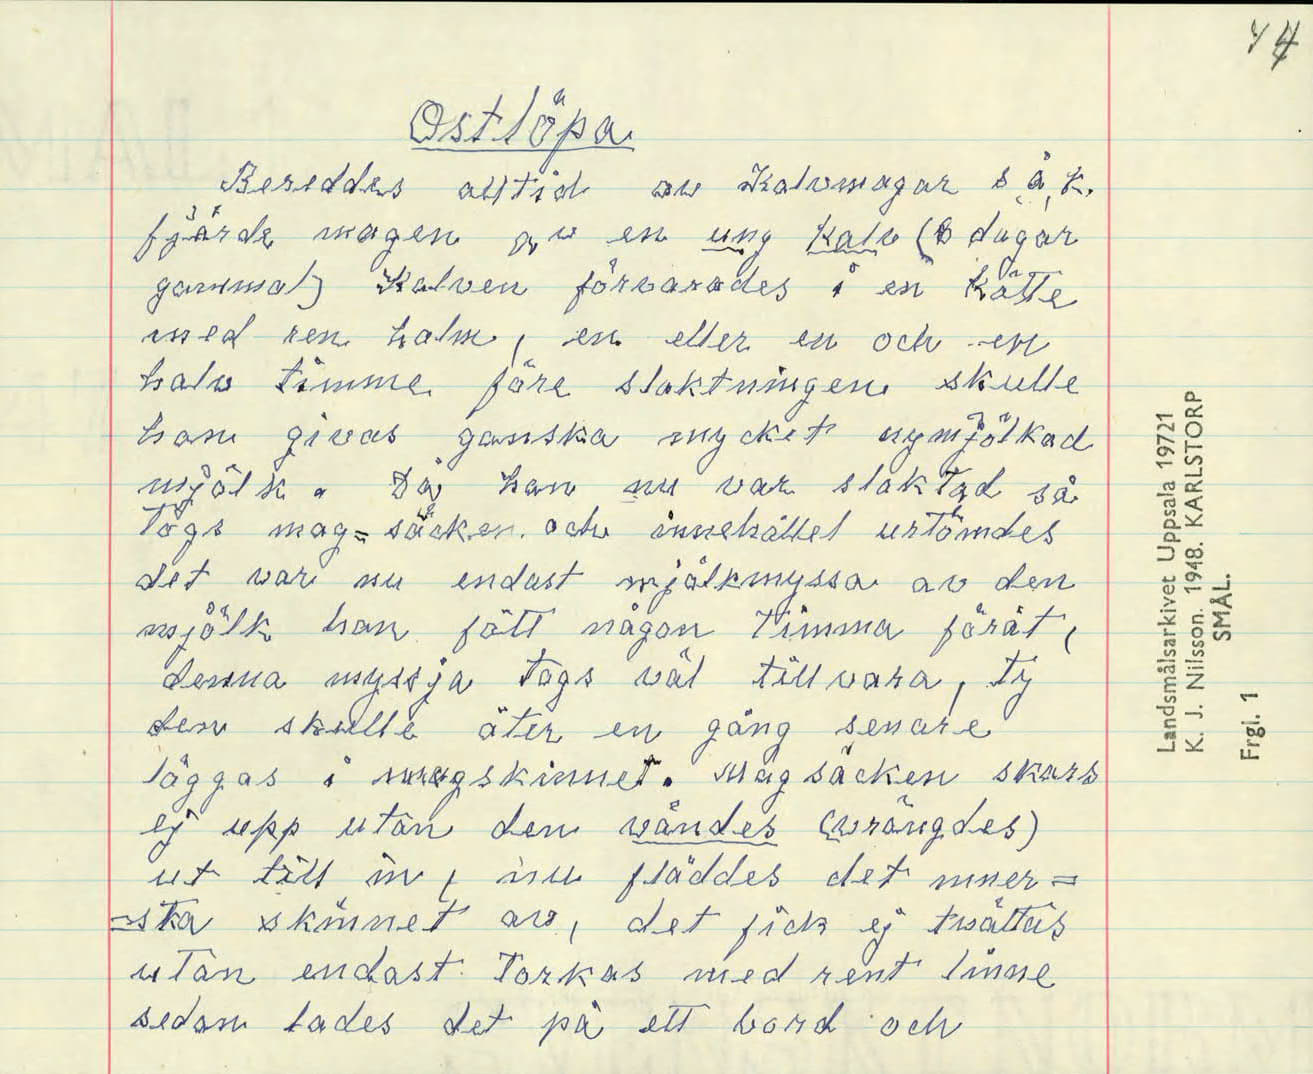 44
Ostlöpa
Bereddes alltid av Kalvmagar s å k.
fjärde magen av en ung Kalv (8 dagar
gammal) Kalven förvarades i en kätte
med ren halm, en eller en och en
halv timme före slaktningen skulle
han givas ganska mycket nymjölkad
mjölk. Då han nu var slaktad så
togs mag=säcken och innehållet urtömdes
det var nu endast mjölkmyssa av den
mjölk han fått någon timma förät,
denna myssja togs väl till vara, ty
den skulle åter en gång senare
läggas i magskinnet. Magsäcken skars
ej upp utan den vändes (vrängdes)
ut till in, nu fläddes det inner=
=sta skinnet av, det fick ej tvättas
utan endast torkas med rent linne
sedan lades det på ett bord och
Landsmålsarkivet Uppsala 19721
K. J. Nilsson. 1948. KARLSTORP
SMÅL.
Frgl. 1